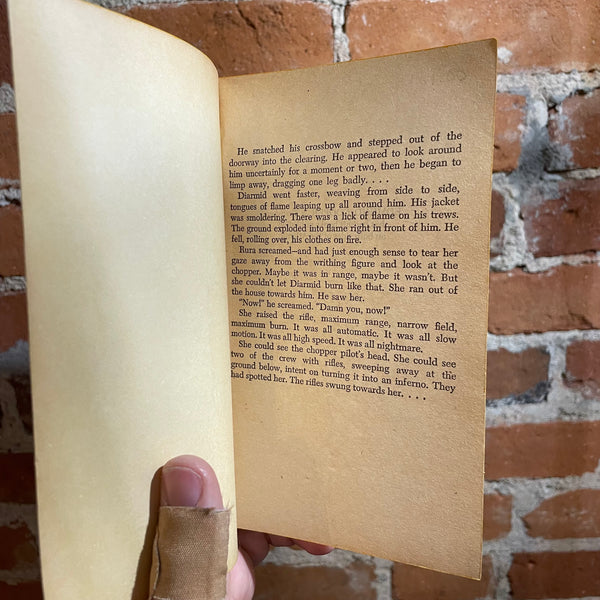 He snatched his crossbow and stepped out of the
doorway into the clearing. He appeared to look around
him uncertainly for a moment or two, then he began to
limp away, dragging one leg badly. . . .
Diarmid went faster, weaving from side to side,
tongues of flame leaping up all around him. His jacket
was smoldering. There was a lick of flame on his trews.
The ground exploded into flame right in front of him. He
fell, rolling over, his clothes on fire.
Rura screamed—and had just enough sense to tear her
gaze away from the writhing figure and look at the
chopper. Maybe it was in range, maybe it wasn't. But
she couldn't let Diarmid burn like that. She ran out of
the house towards him. He saw her.
"Now!" he screamed. "Damn you, now!"
She raised the rifle, maximum range, narrow field,
maximum burn. It was all automatic. It was all slow
motion. It was all high speed. It was all nightmare.
She could see the chopper pilot's head. She could see
two of the crew with rifles, sweeping away at the
ground below, intent on turning it into an inferno. They
had spotted her. The rifles swung towards her. . . .